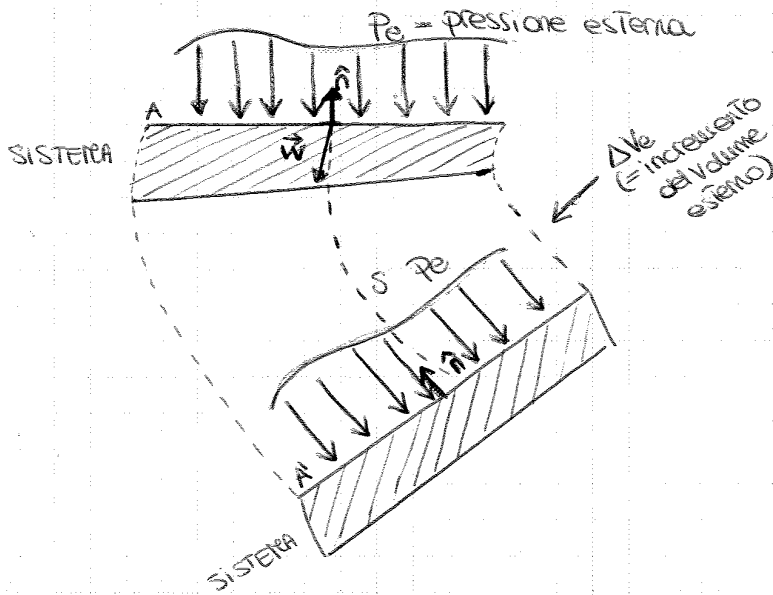 Pe = pressione esterna
n̂
A
SISTEMA
w⃗
ΔVe
(= incremento
del volume
esterno)
S
Pe
n̂
A'
SISTEMA